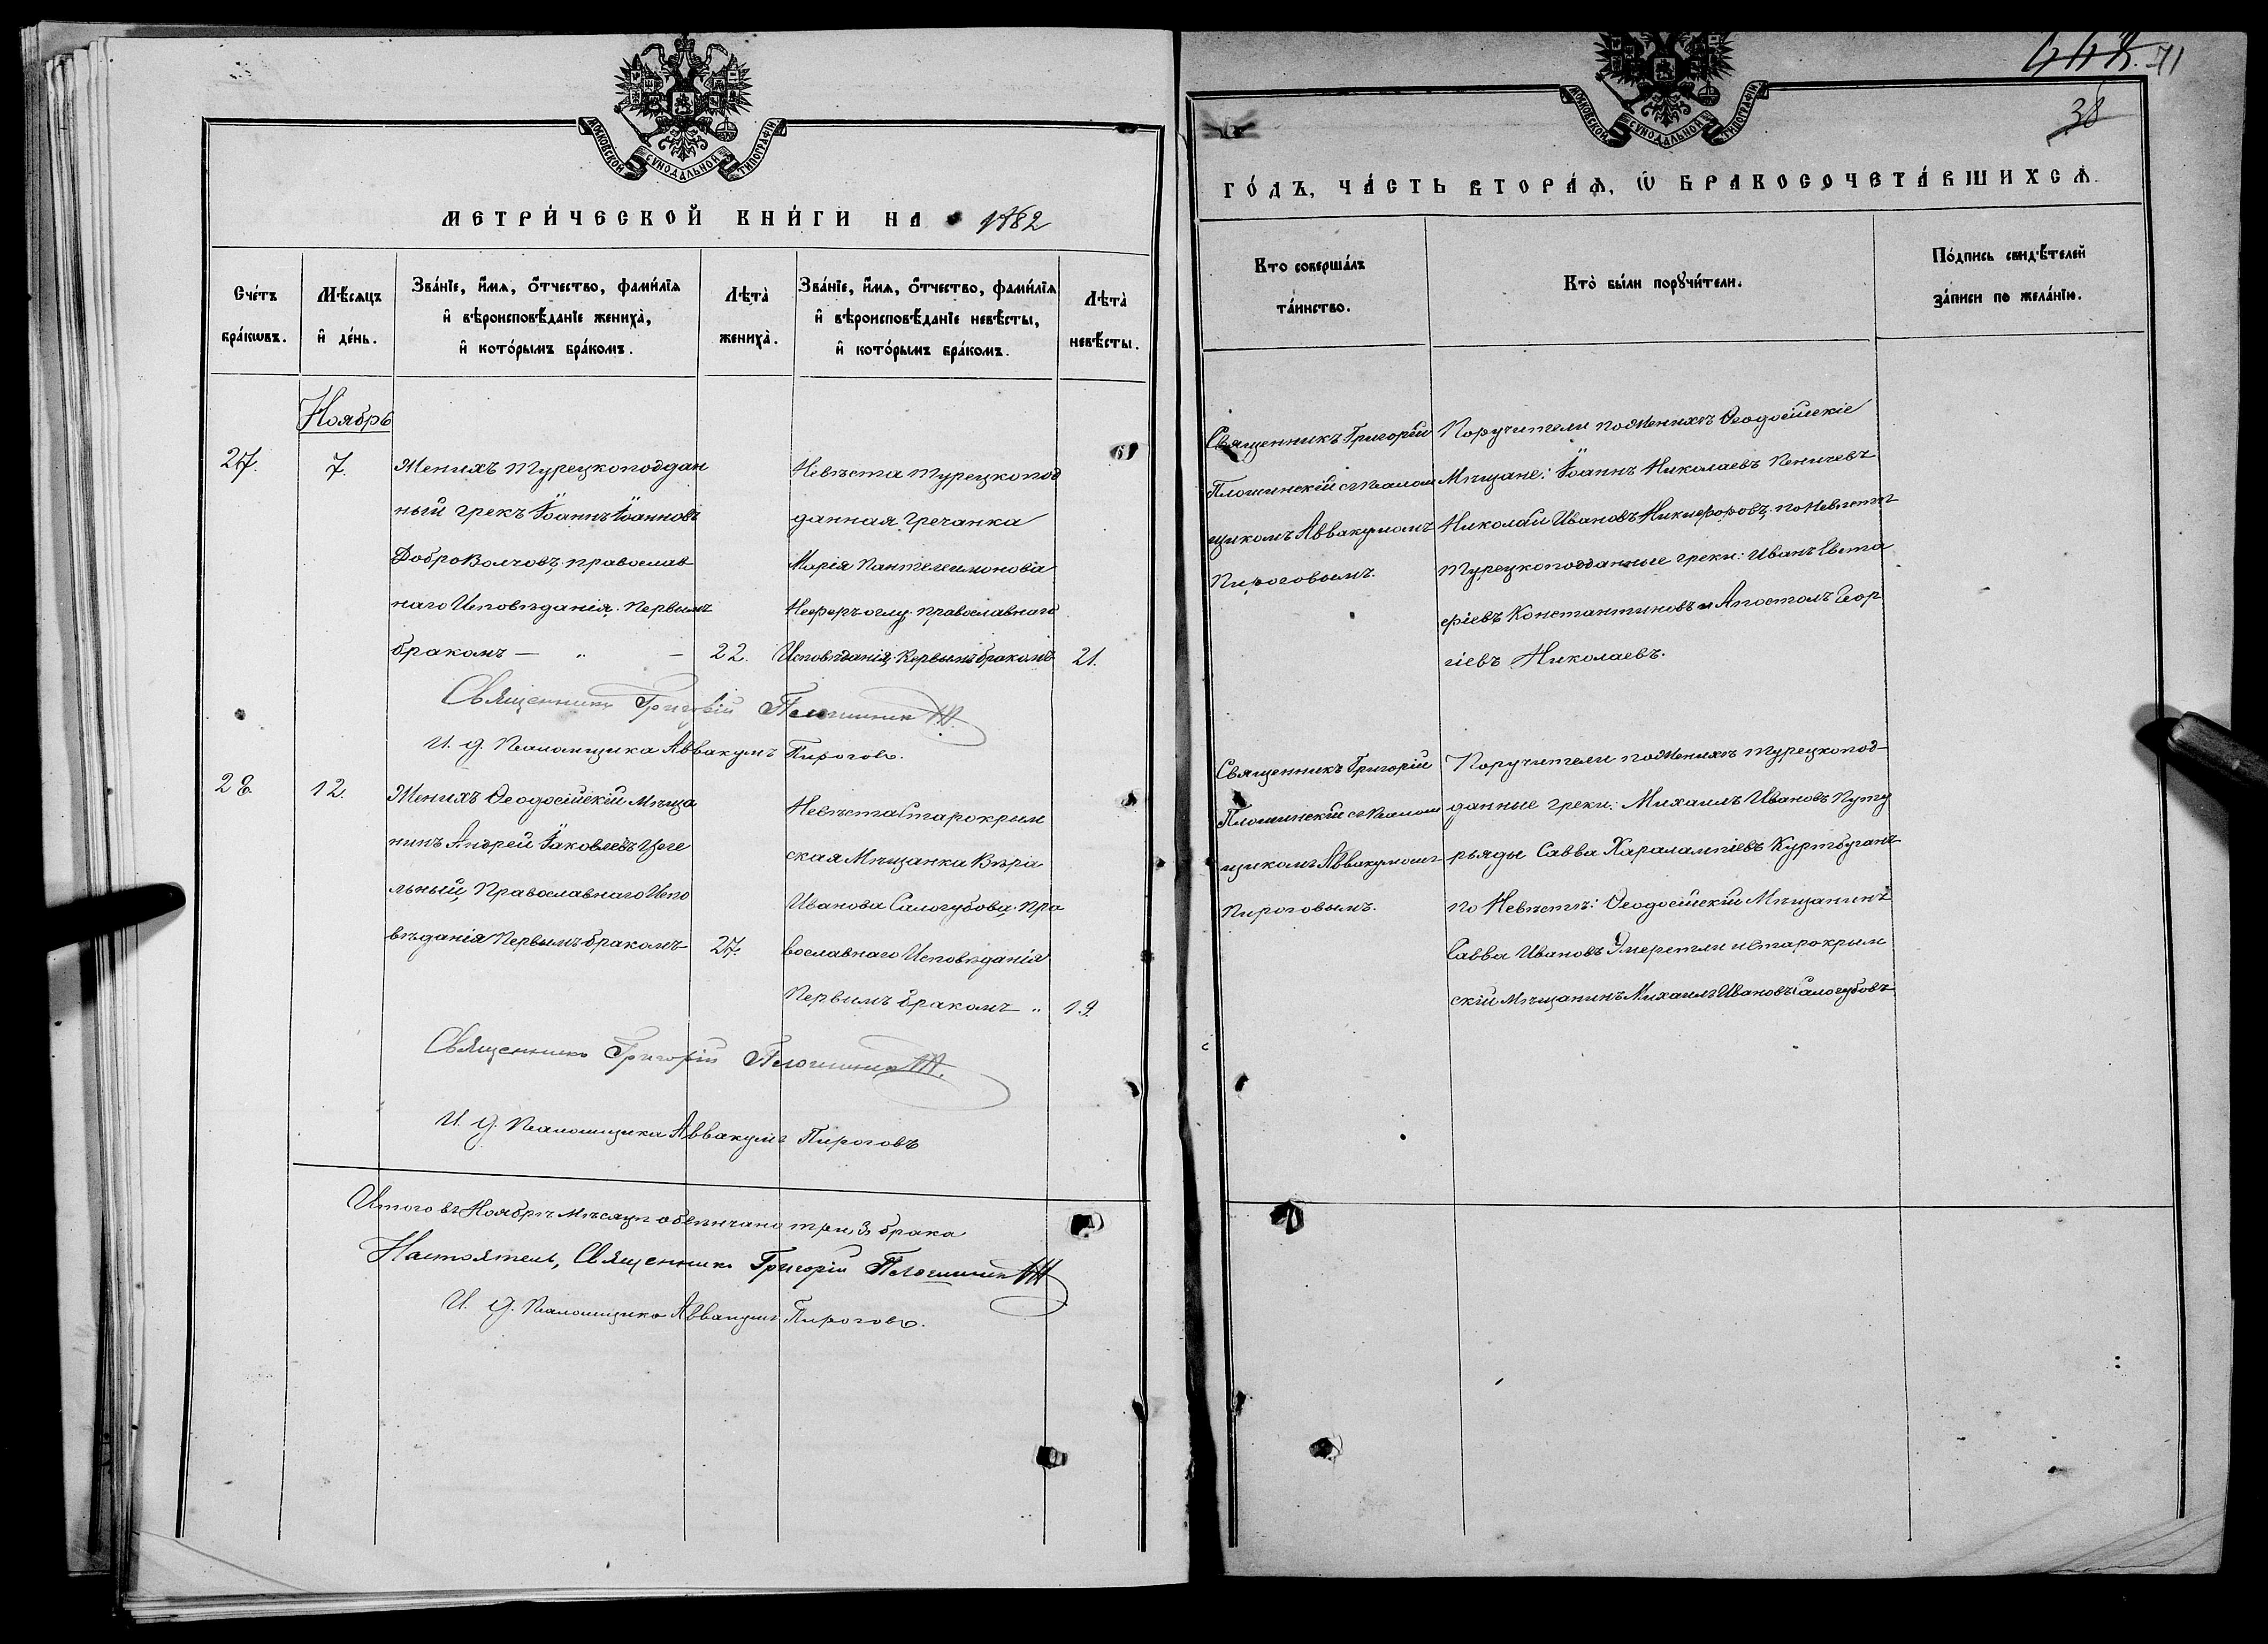 МОСКОВСКОЙ СѴНОДАЛЬНОЙ ТИПОГРАФІИ
МЕТРИ́ЧЕСКОЙ КНИ́ГИ НА 1882
Сче́тъ бра́кѡвъ.
Мѣ́сяцъ и҆ де́нь.
Зва́нїе, и҆́мѧ, ѻ҆́тчество, фами́лїя
и҆ вѣроисповѣ́данїе жениха̀,
и҆ кото́рымъ бра́комъ.
Лѣта̀ жениха̀.
Зва́нїе, и҆́мѧ, ѻ҆́тчество, фами́лїя
и҆ вѣроисповѣ́данїе невѣ́сты,
и҆ кото́рымъ бра́комъ.
Лѣта̀ невѣ́сты.
Ноябрь
27.
7.
Женихъ турецкоподдан
ный грекъ Іоаннъ Іоанновъ
Доброволчовъ, православ
наго Исповѣданія. Первымъ
бракомъ — „ —
22.
Невѣста турецкопод
данная гречанка
Марія Пантелеимонова
Неферъ оглу, православнаго
Исповѣданія, Первымъ бракомъ
21.
Священникъ Григорій Плошинскій
И. д. Псаломщика Аввакумъ Пироговъ.
28
12.
Женихъ Ѳеодосійскій Мѣща
нинъ Андрей Іаковлевъ Цеге
льный, Православнаго Испо
вѣданія Первымъ бракомъ
27.
Невѣста Старокрым
ская Мѣщанка Вѣра
Иванова Салогубова, Пра
вославнаго Исповѣданія
Первымъ бракомъ „
19.
Священникъ Григорій Плошинскій.
И. д. Псаломщика Аввакумъ Пироговъ
Итого въ Ноябрѣ Мѣсяцѣ обвѣнчано три, 3, брака
Настоятель, Священникъ Григорій Плошинскій
И. д. Псаломщика Аввакумъ Пироговъ.
71
38
МОСКОВСКОЙ СѴНОДАЛЬНОЙ ТИПОГРАФІИ
ГО́ДЪ, ЧА́СТЬ ВТОРА́Ѧ, Ѡ҆ БРАКОСОЧЕТА́ВШИХСѦ.
Кто соверша́лъ
та́инство.
Кто̀ бы́ли порꙋчи́тели.
По́дпись свидѣ́телей
за́писи по жела́нїю.
Священникъ Григорій
Плошинскій съ Псалом
щикомъ Аввакумомъ
Пироговымъ.
Поручители по Женихѣ Ѳеодосійскіе
Мѣщане: Іоаннъ Николаевъ Пеничевъ
Николай Ивановъ Никифоровъ, по Невѣстѣ
турецкоподданные греки: Иванъ Евста
фіевъ Константиновъ и Апостолъ Геор
гіевъ Николаевъ.
Священникъ Григорій
Плошинскій съ Псалом
щикомъ Аввакумомъ
Пироговымъ.
Поручители по Женихѣ турецкопод-
данные греки: Михаилъ Ивановъ Путу
рьяды Савва Харалампіевъ Куртбуганъ
по Невѣстѣ: Ѳеодосійскій Мѣщанинъ
Савва Ивановъ Эмеретли и Старокрым
скій Мѣщанинъ Михаилъ Ивановъ Салогубовъ